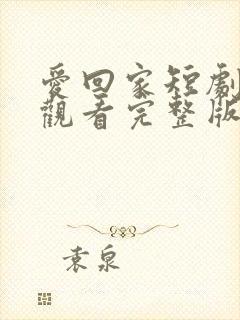 愛回家短劇
觀看完整版
袁泉